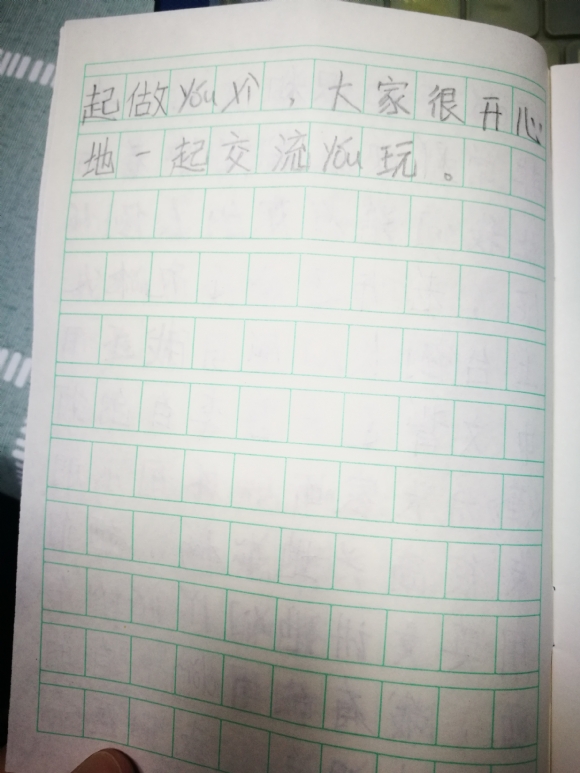 起做you义个，大家很开心
地一起交流you玩。